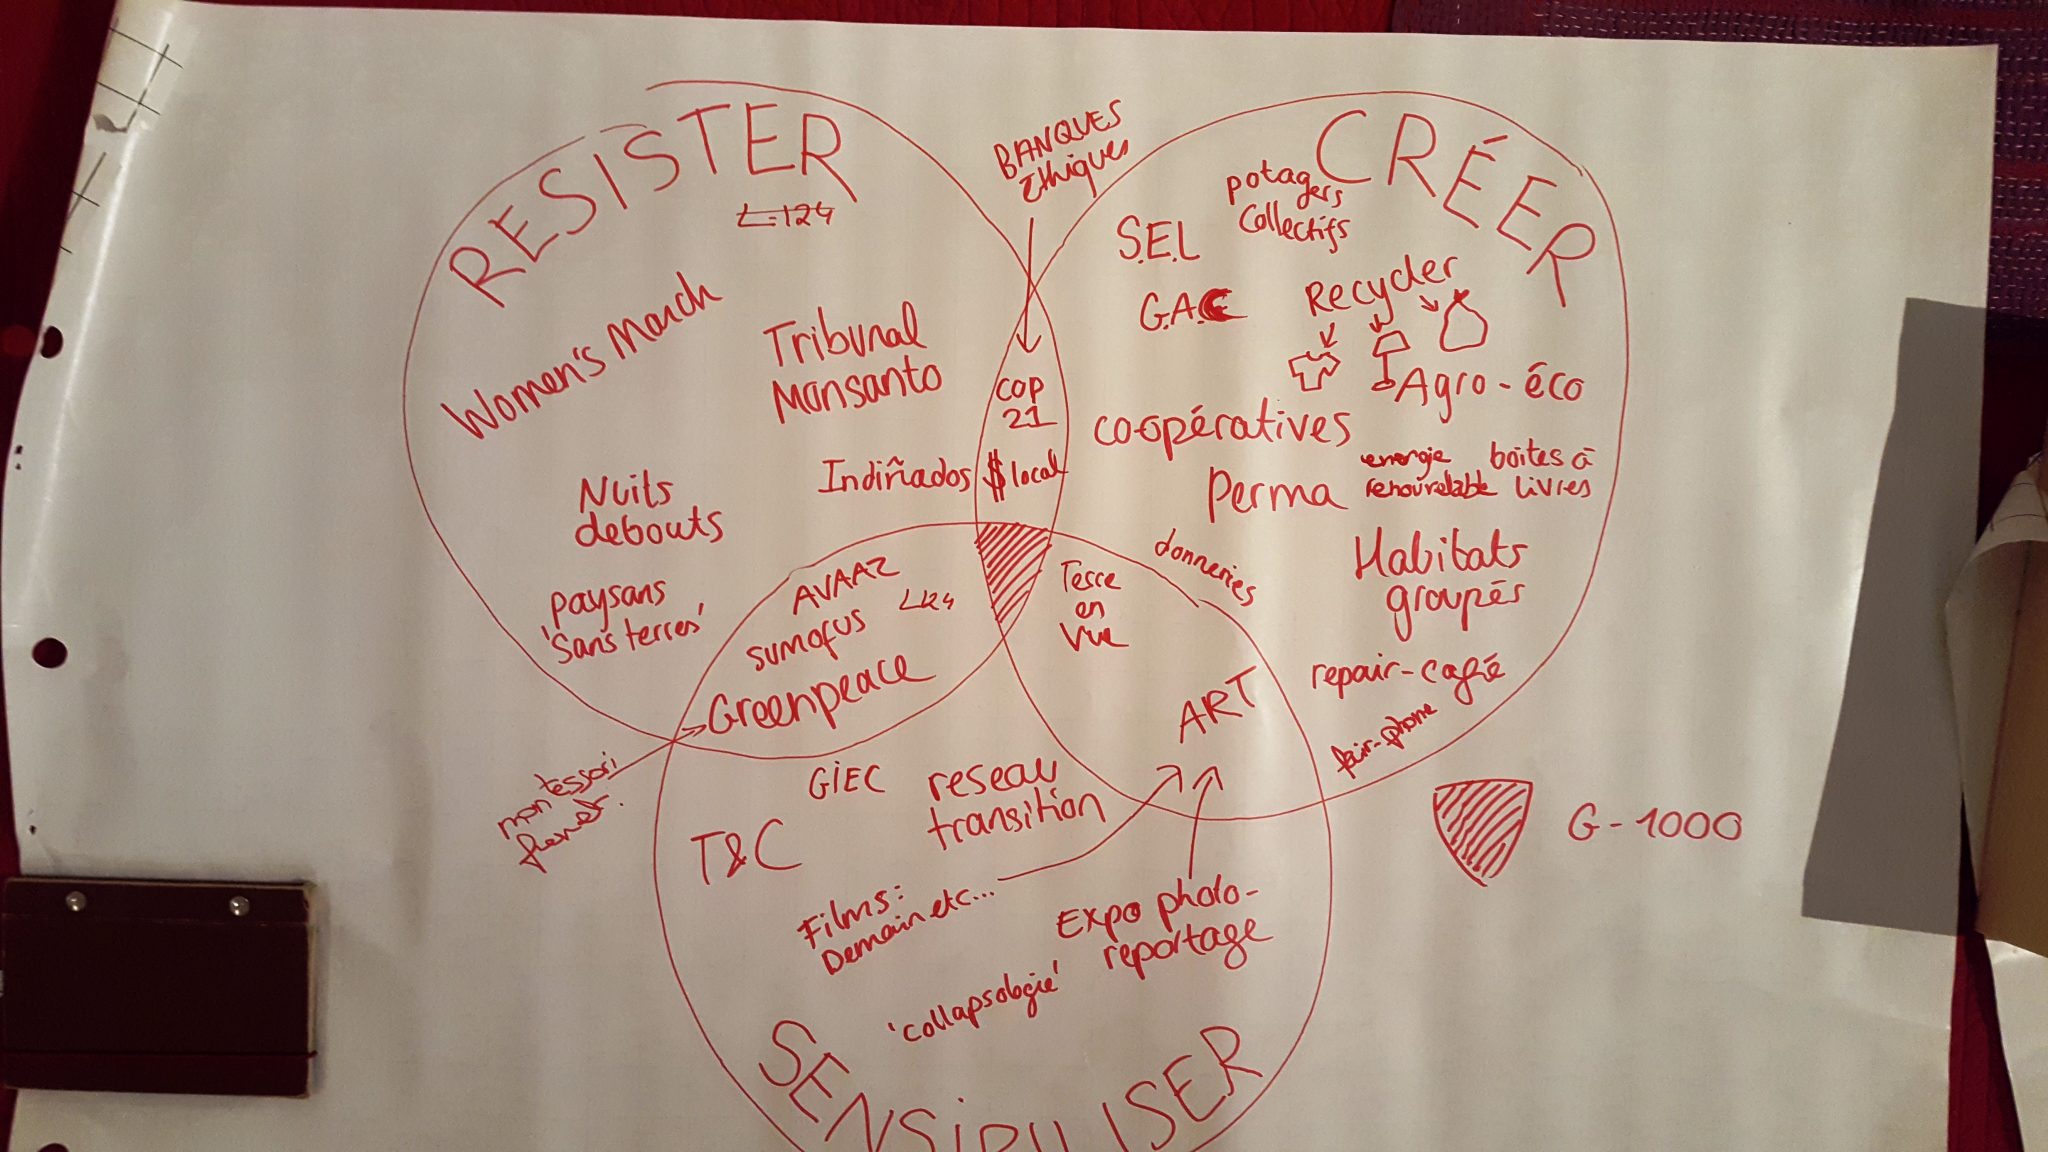 RESISTER
L-124
Women's March
Tribunal
Monsanto
Nuits
debouts
Indiñados
paysans
'Sans terres'
BANQUES
Ethiques
COP
21
$ local
CRÉER
potagers
Collectifs
S.E.L
G.A.C
Recycler
Agro-éco
coopératives
energie
renouvelable
boites à
livres
Perma
donneries
Habitats
groupés
repair-café
fair-phone
AVAAZ
L124
sumofus
Greenpeace
Terre
en
Vue
ART
montessori
GIEC
reseau
transition
T&C
Films:
Demain etc...
Expo photo-
reportage
'collapsologie'
SENSIBILISER
G-1000